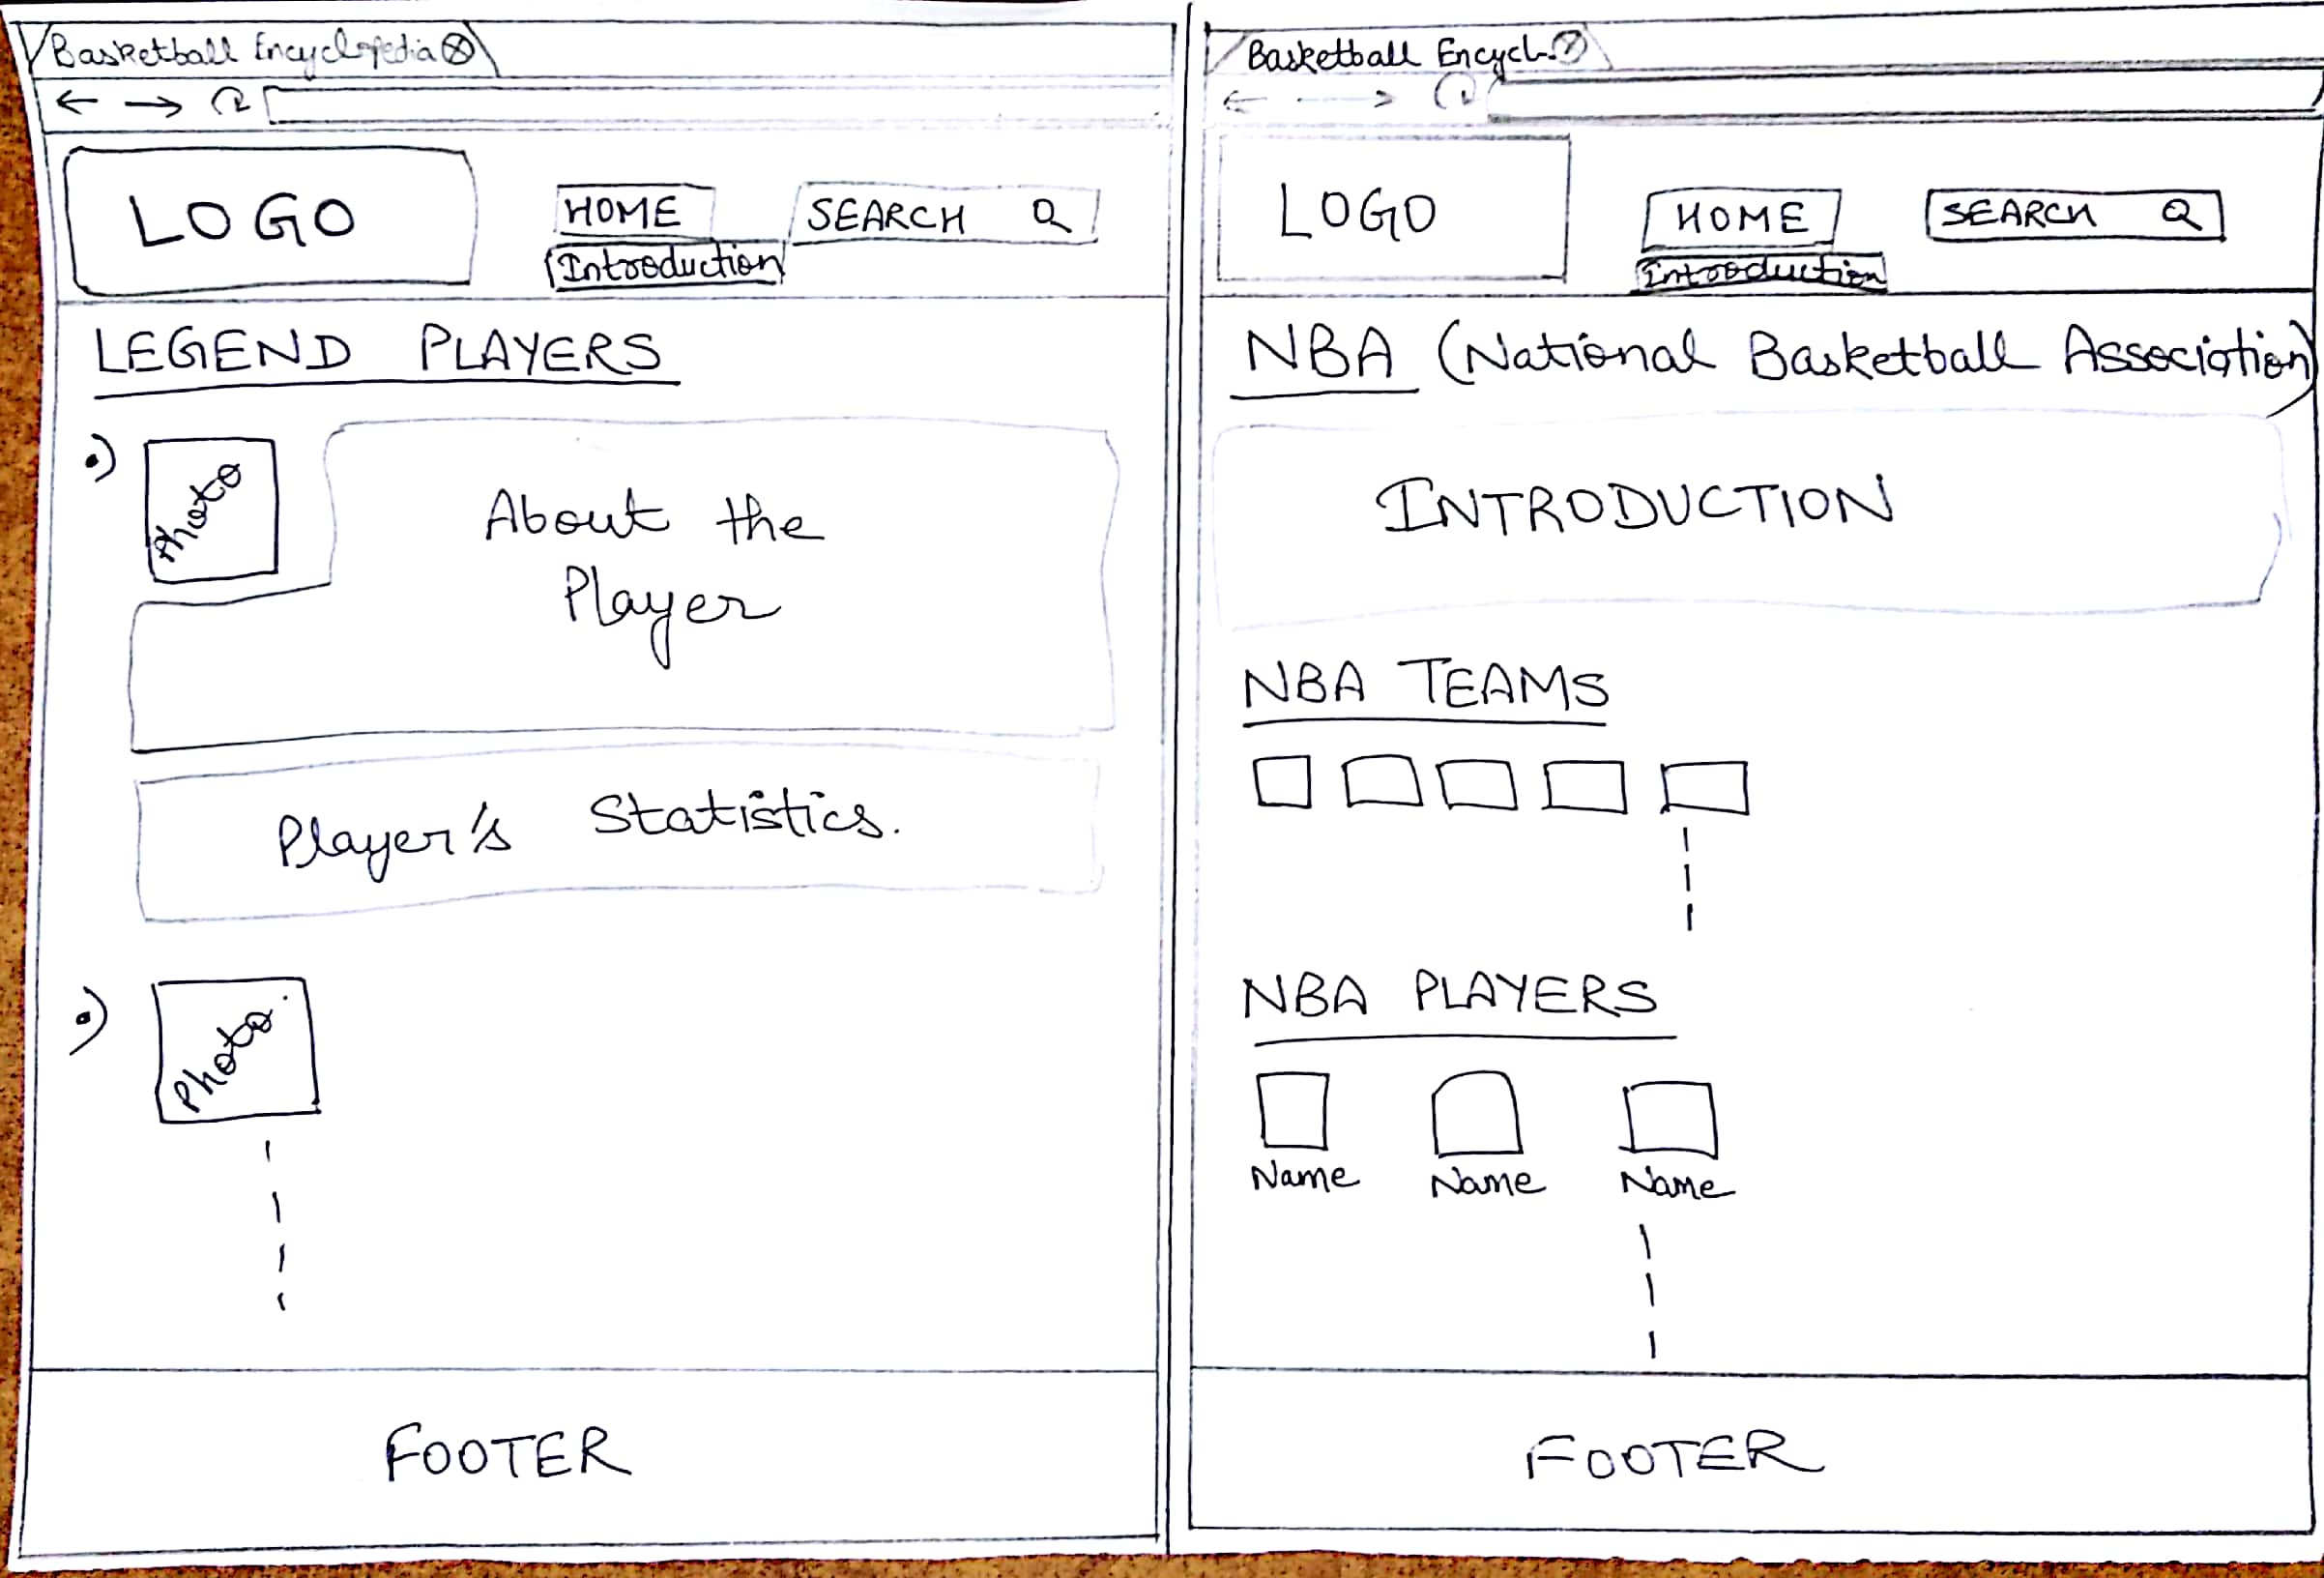 Basketball Encyclopedia
LOGO
HOME
SEARCH
Introduction
LEGEND PLAYERS
Photo
About the
Player
Player's Statistics.
Photo
FOOTER
Basketball Encycl..
LOGO
HOME
SEARCH
Introduction
NBA (National Basketball Association)
INTRODUCTION
NBA TEAMS
NBA PLAYERS
Name Name Name
FOOTER